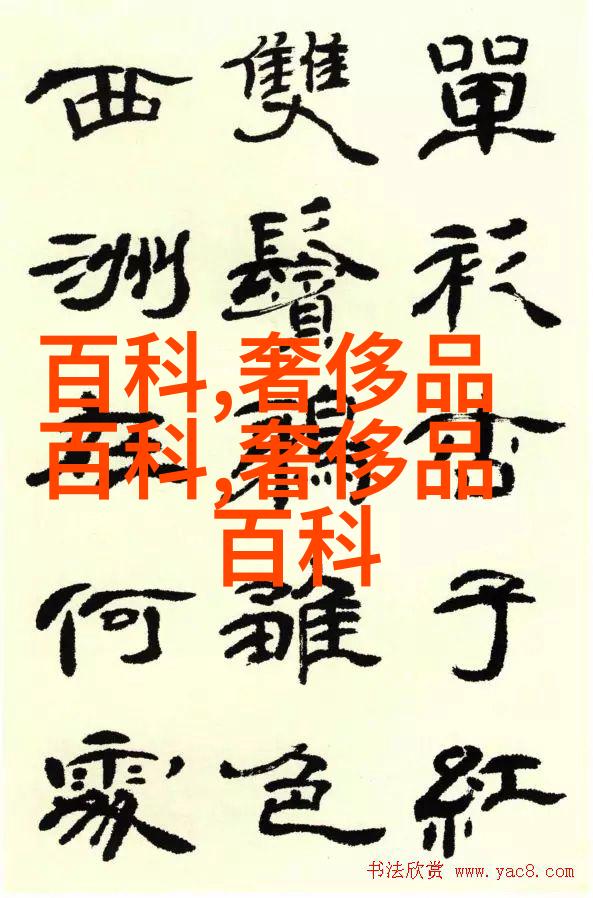 單衫杏子紅
雙鬢雛色
西洲何處
百科,奢侈品
百科,奢侈品
百科
书法欣赏 www.yac8.com